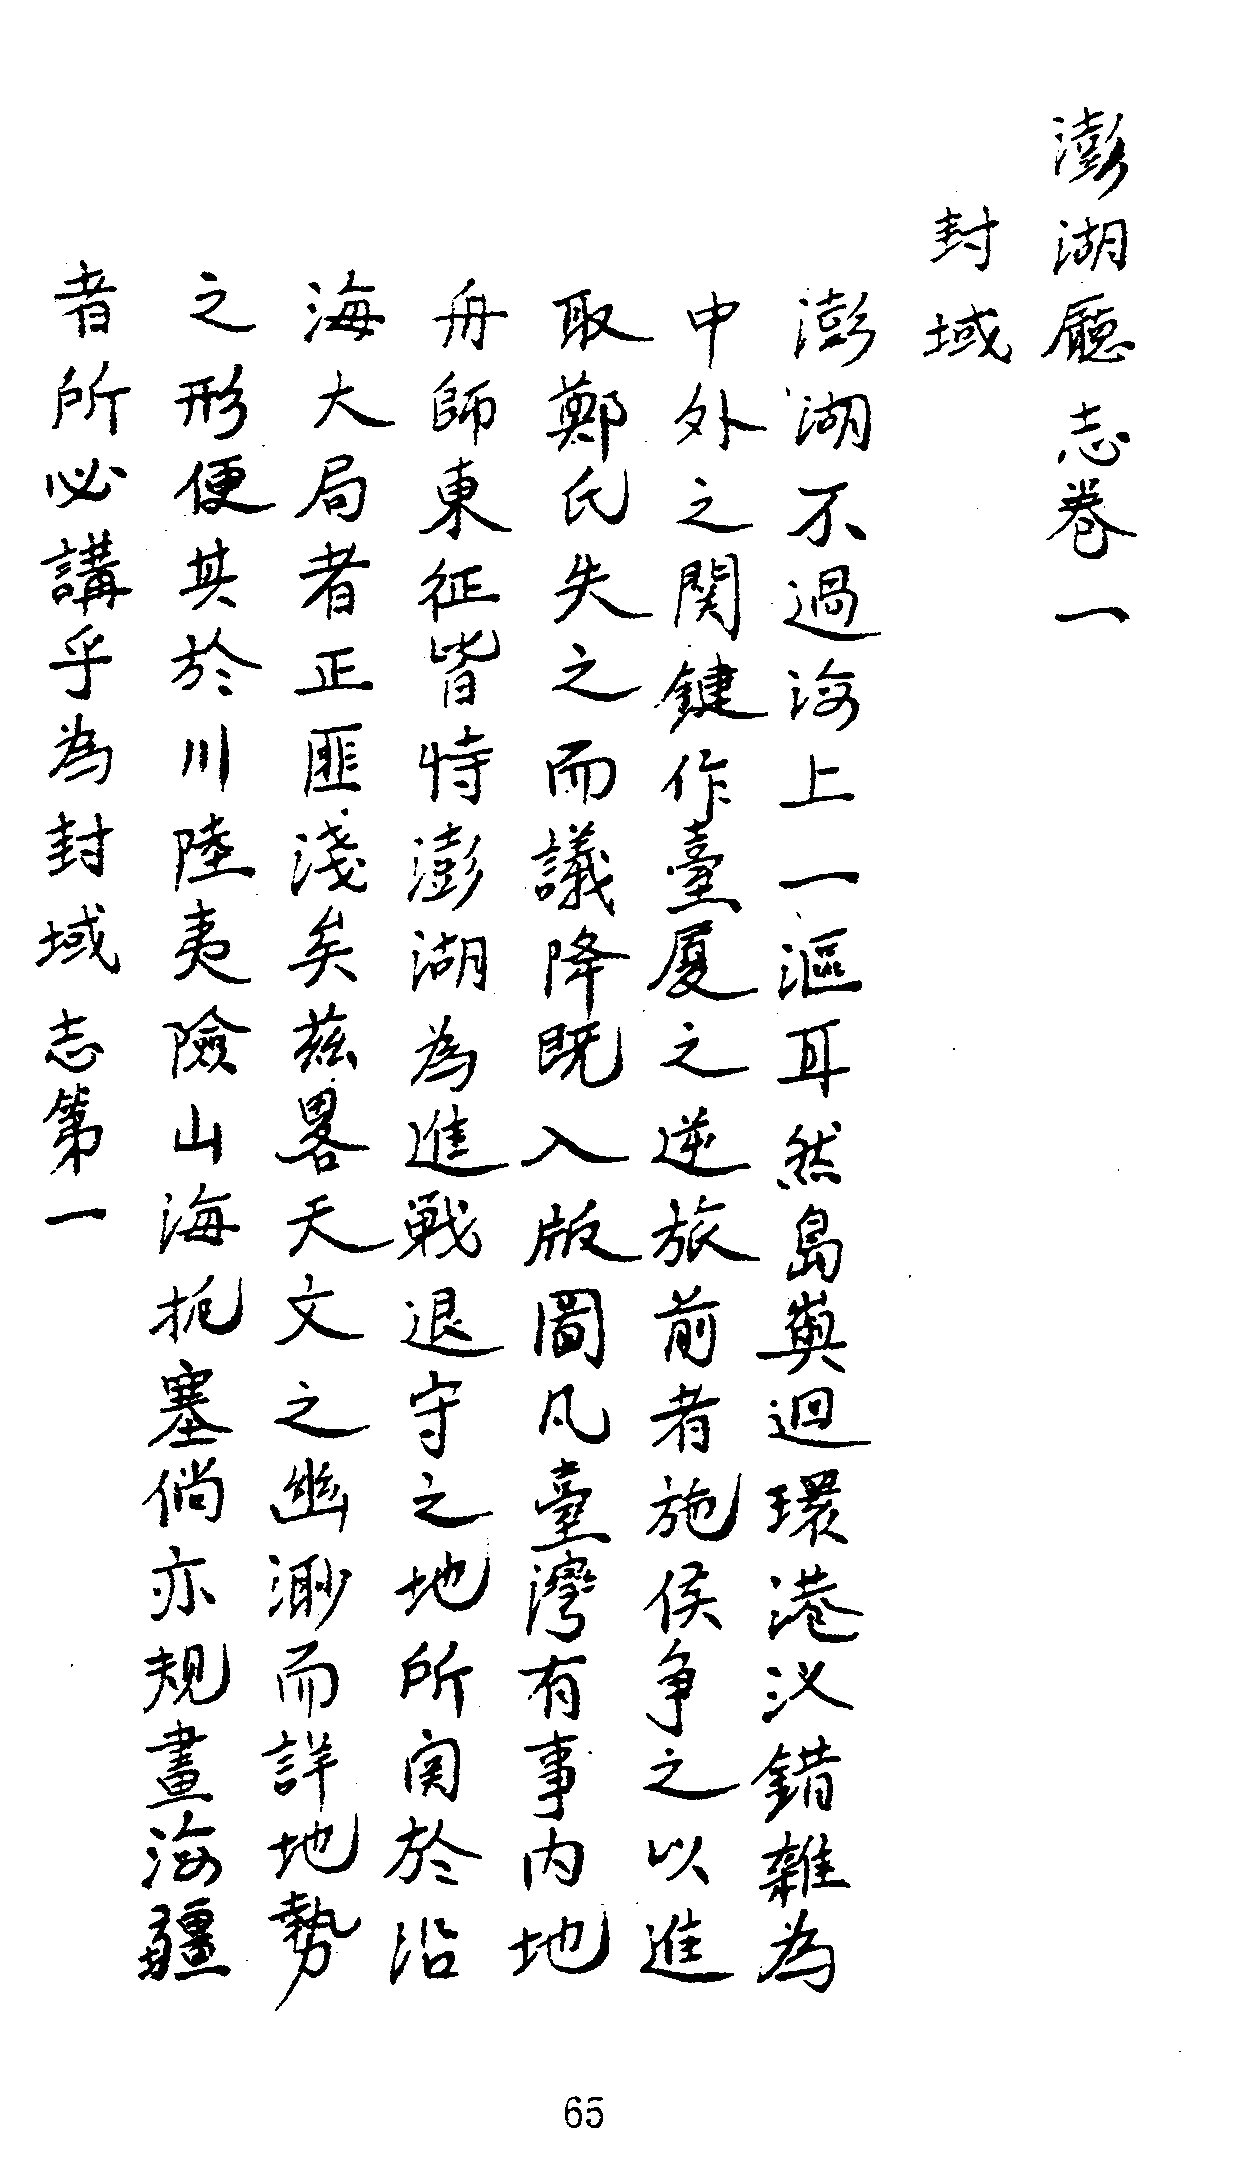 澎湖廳志卷一
封域
澎湖不過海上一漚耳然島嶼迴環港汊錯雜為
中外之関鍵作臺厦之逆旅前者施侯争之以進
取鄭氏失之而議降既入版圖凡臺灣有事内地
舟師東征皆恃澎湖為進戰退守之地所関於沿
海大局者正匪淺矣兹畧天文之幽渺而詳地勢
之形便其於川陸夷險山海扼塞倘亦規畫海疆
者所必講乎為封域志第一
65